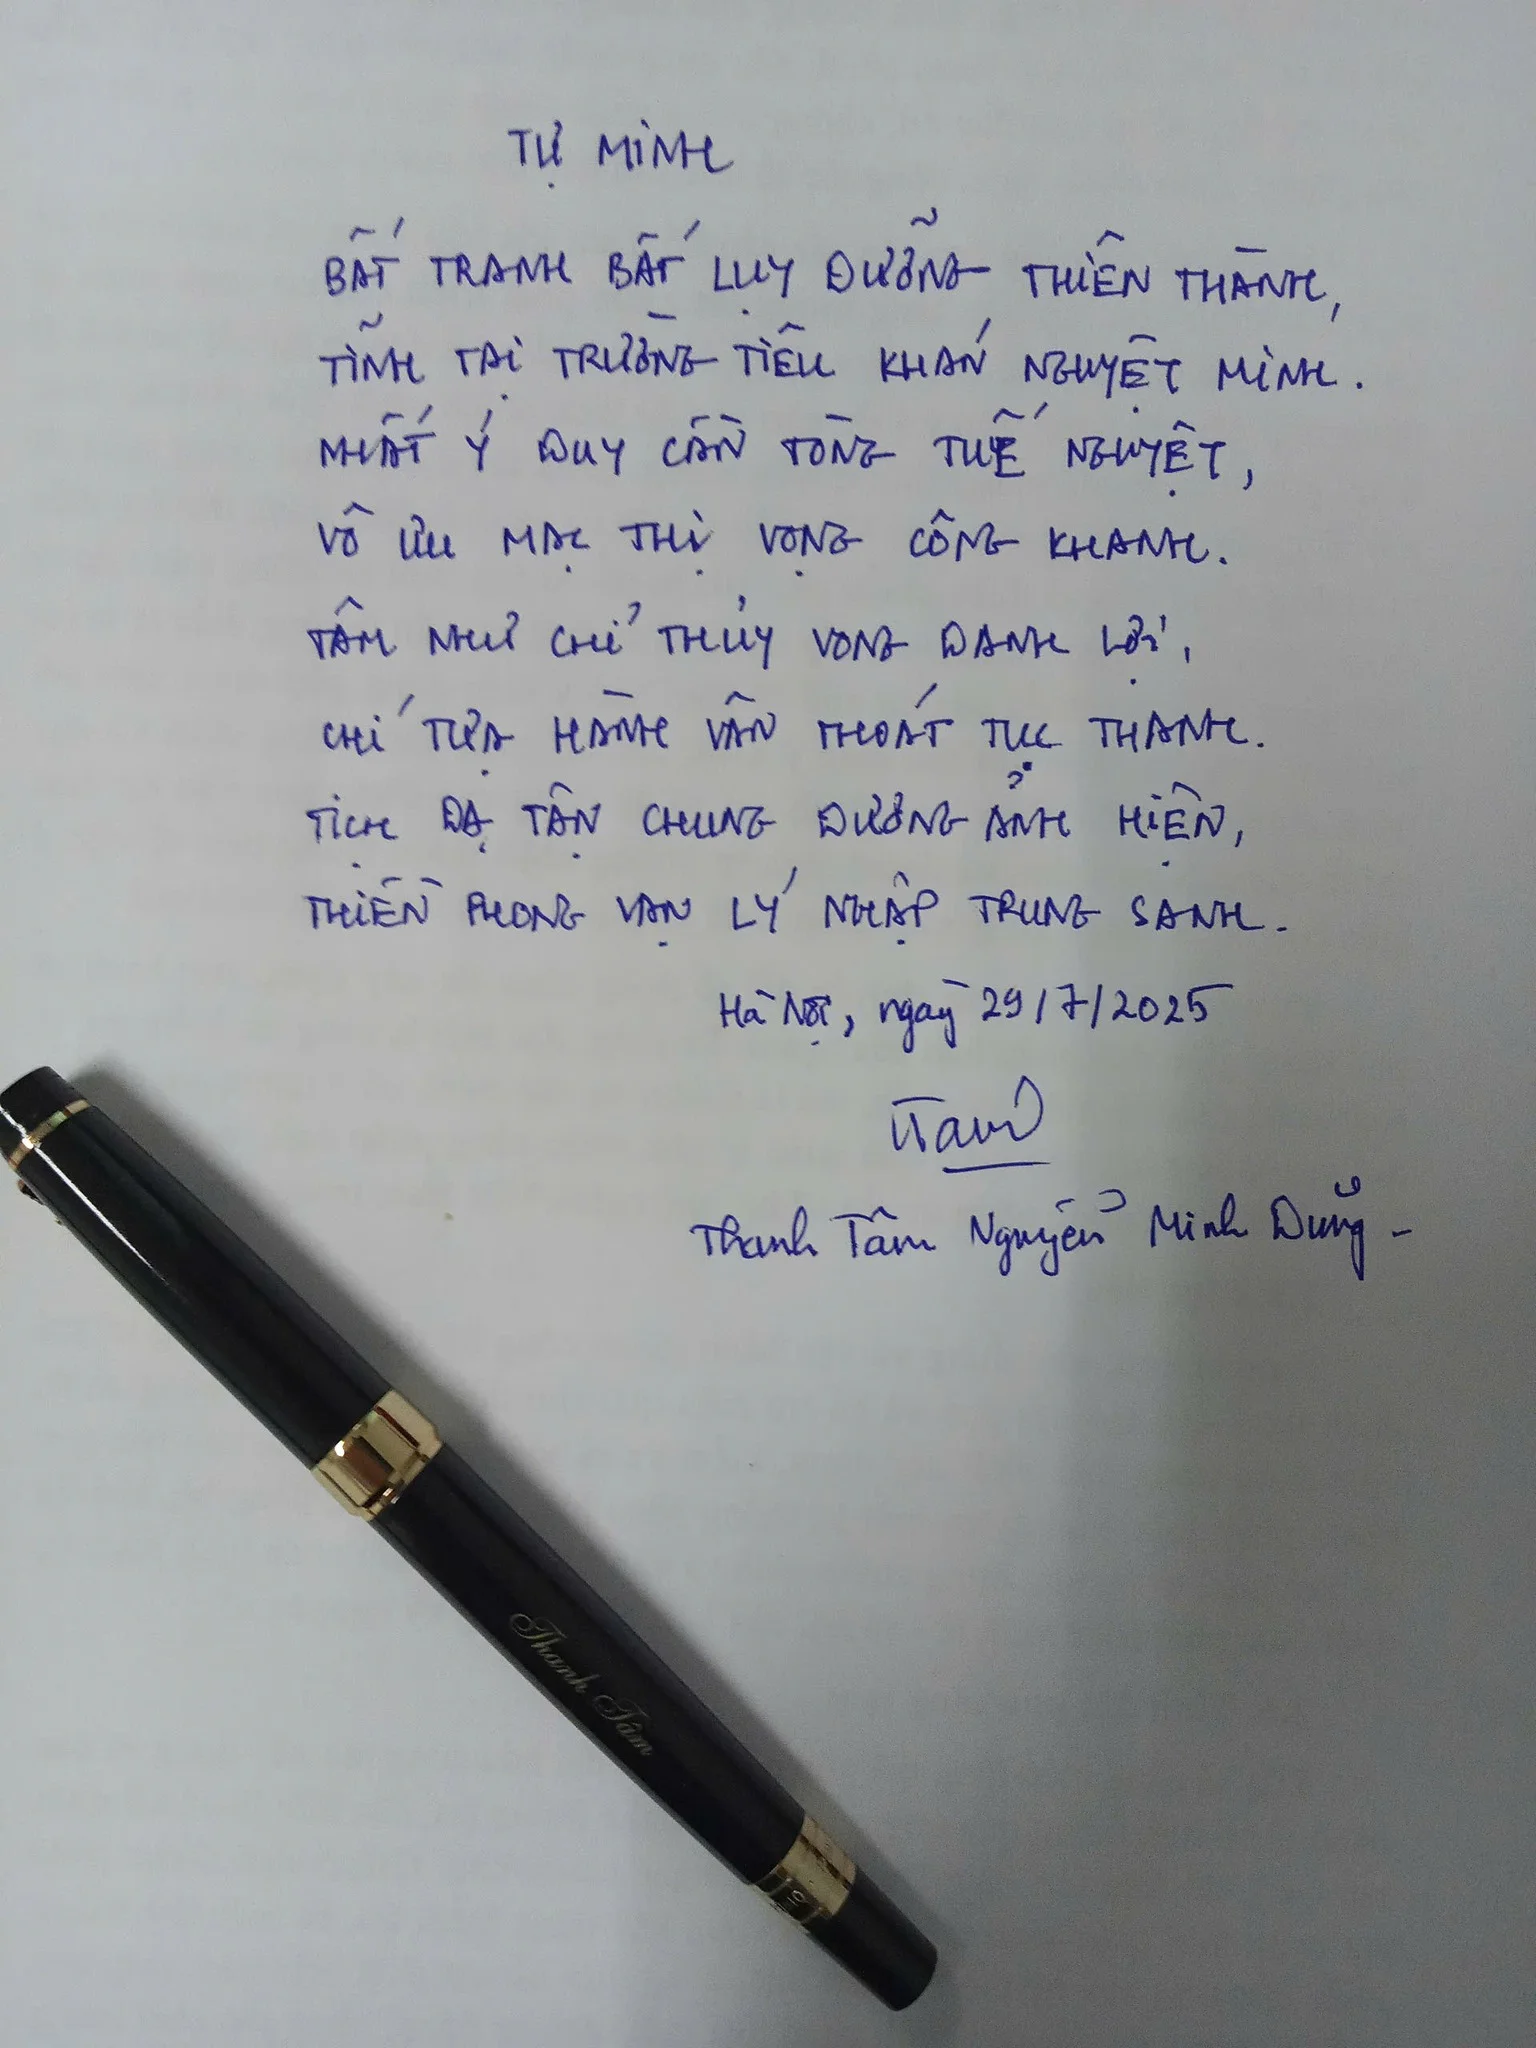 TỰ MINH
BẤT TRANH BẤT LỤY DƯỠNG THIÊN THÀNH,
TĨNH TẠI TRƯỜNG TIÊU KHÁN NGUYỆT MINH.
NHẤT Ý DUY CẦN TÒNG TUẾ NGUYỆT,
VÔ ƯU MẠC THỊ VỌNG CÔNG KHANH.
TÂM NHƯ CHỈ THỦY VONG DANH LỢI,
CHÍ TỰA HÀNH VÂN THOÁT TỤC THANH.
TỊCH DẠ TẬN CHUNG DƯƠNG ẢNH HIỆN,
THIỀN PHONG VẠN LÝ NHẬP TRUNG SANH.
Hà Nội, ngày 29/7/2025
Thanh Tâm Nguyễn Minh Dũng
Thanh Tâm